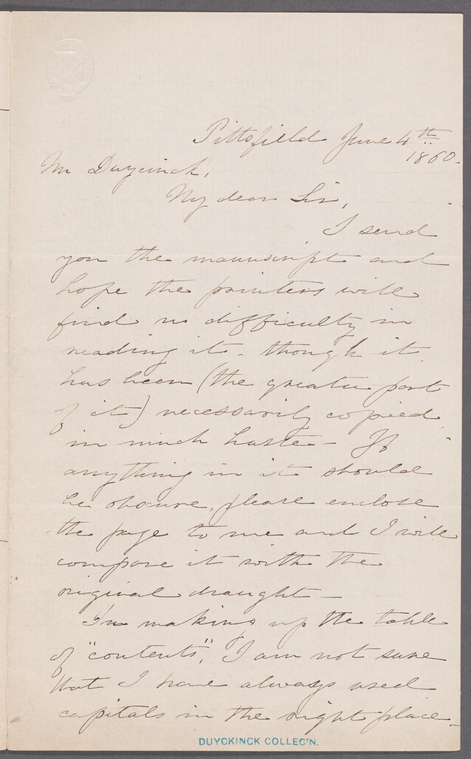 Pittsfield June 4th
1860.
Mr Duycinck,
My dear Sir,
I send
you the manuscript and
hope the printers will
find no difficulty in
reading it - though it
has been (the greater part
of it) necessarily copied
in much haste - If
anything in it should
be obscure, please enclose
the page to me and I will
compare it with the
original draught -
In making up the table
of "contents", I am not sure
that I have always used
capitals in the right place -
DUYCKINCK COLLEC'N.